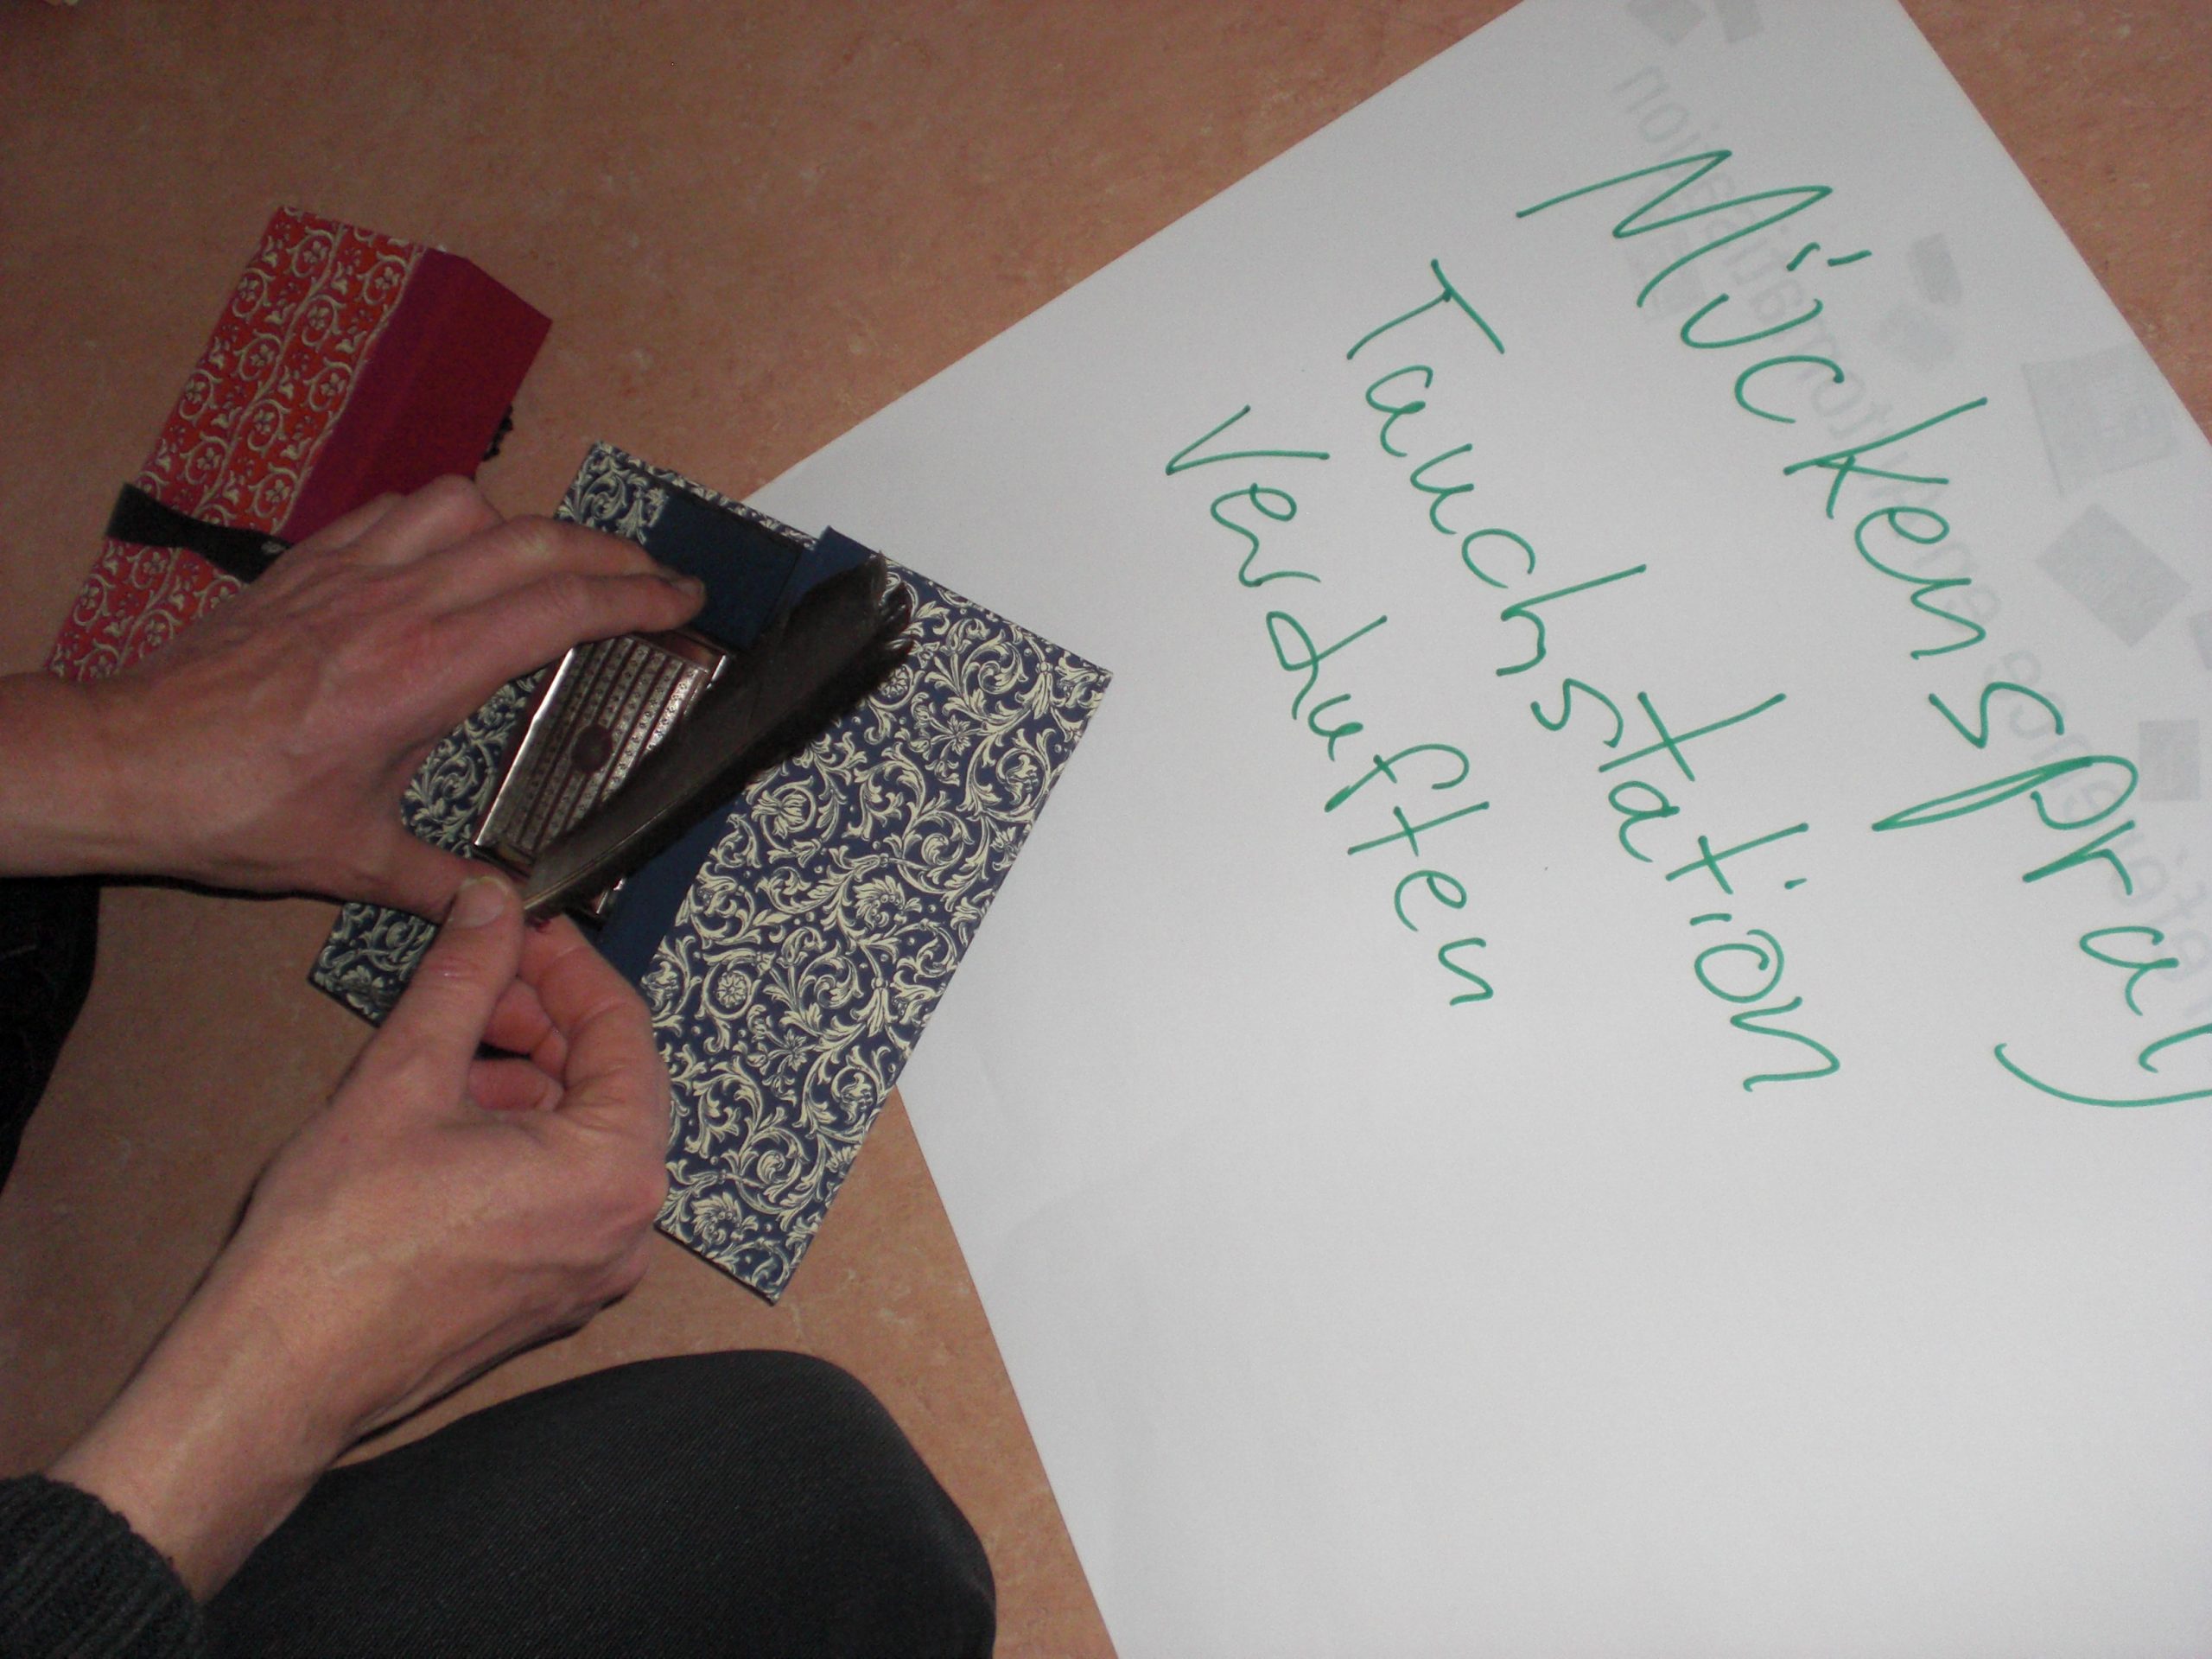 Mückenspray
Tauchstation
Verduften